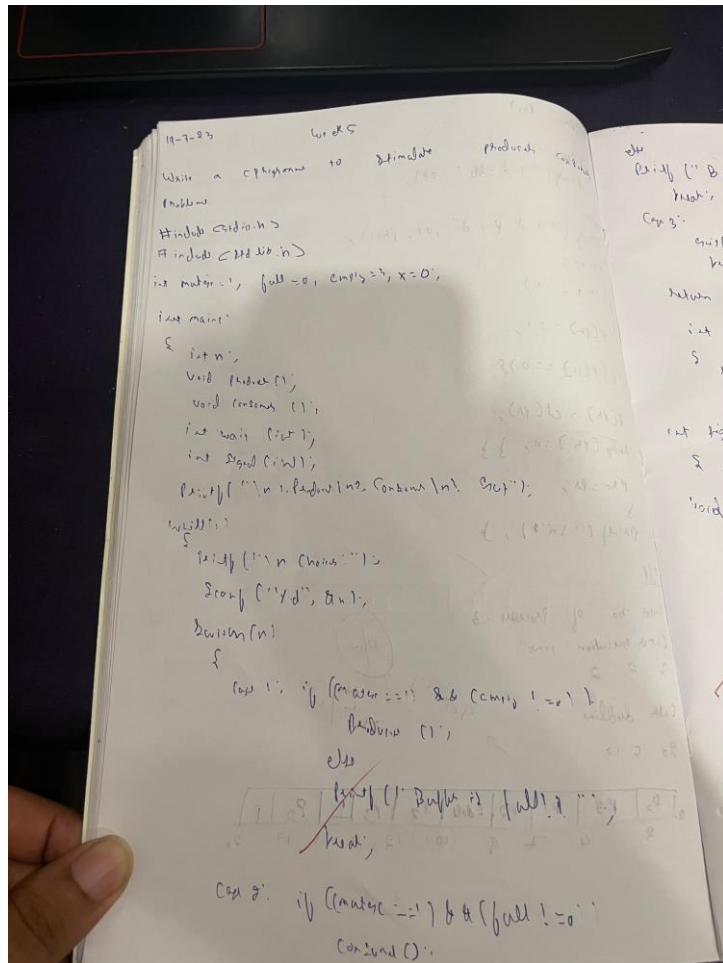 19-7-23 Week 5
Write a c programme to stimulate producer consumer
Problem
#include <stdio.h>
#include <stdlib.h>
int mutex=1, full=0, empty=3, x=0;
int main
{
int n;
void producer();
void consumer();
int wait(int);
int signal(int);
printf("\n1.Producer\n2.Consumer\n3.
while(1)
{
printf("\n Choice:");
Scanf("%d", &n);
Switch(n)
{
Case 1: if((mutex==1) && (empty!=0))
Producer();
else
printf("Buffer is full!!");
break;
Case 2: if((mutex==1) && (full!=0
Consumer();
else
Printf("B
break;
Case 3:
return
int
{
int
{
void